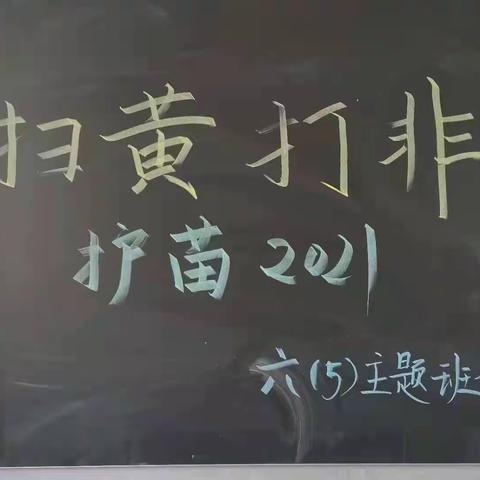 扫黄打非
护苗2021
六(5)主题班